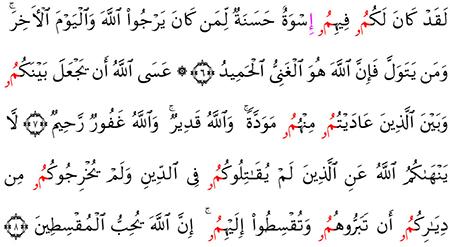 لَقَدْ كَانَ لَكُمُۥ فِيهِمُۥ إِسْوَةٌ حَسَنَةٌ لِّمَن كَانَ يَرْجُوا۟ ٱللَّهَ وَٱلْيَوْمَ ٱلْأَخِرَ ۚ
وَمَن يَتَوَلَّ فَإِنَّ ٱللَّهَ هُوَ ٱلْغَنِىُّ ٱلْحَمِيدُ ﴿٦﴾ ۞ عَسَى ٱللَّهُ أَن يَجْعَلَ بَيْنَكُمُۥ
وَبَيْنَ ٱلَّذِينَ عَادَيْتُمُۥ مِنْهُمُۥ مَوَدَّةً ۚ وَٱللَّهُ قَدِيرٌ ۚ وَٱللَّهُ غَفُورٌ رَّحِيمٌ ﴿٧﴾ لَّا
يَنْهَىٰكُمُ ٱللَّهُ عَنِ ٱلَّذِينَ لَمْ يُقَـٰتِلُوكُمُۥ فِى ٱلدِّينِ وَلَمْ يُخْرِجُوكُمُۥ مِن
دِيَـٰرِكُمُۥ أَن تَبَرُّوهُمُۥ وَتُقْسِطُوٓا۟ إِلَيْهِمُۥ ۚ إِنَّ ٱللَّهَ يُحِبُّ ٱلْمُقْسِطِينَ ﴿٨﴾